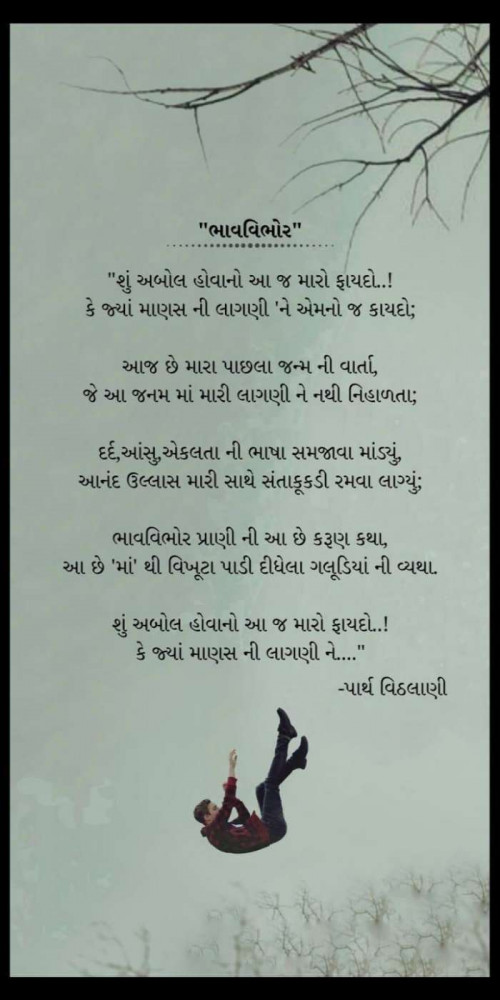 "ભાવવિભોર"
"શું અબોલ હોવાનો આ જ મારો ફાયદો..!
કે જ્યાં માણસ ની લાગણી 'ને એમનો જ કાયદો;
આજ છે મારા પાછલા જન્મ ની વાર્તા,
જે આ જનમ માં મારી લાગણી ને નથી નિહાળતા;
દર્દ,આંસુ,એકલતા ની ભાષા સમજાવા માંડ્યું,
આનંદ ઉલ્લાસ મારી સાથે સંતાકૂકડી રમવા લાગ્યું;
ભાવવિભોર પ્રાણી ની આ છે કરૂણ કથા,
આ છે 'માં' થી વિખૂટા પાડી દીધેલા ગલૂડિયાં ની વ્યથા.
શું અબોલ હોવાનો આ જ મારો ફાયદો..!
કે જ્યાં માણસ ની લાગણી ને...."
-પાર્થ વિઠલાણી